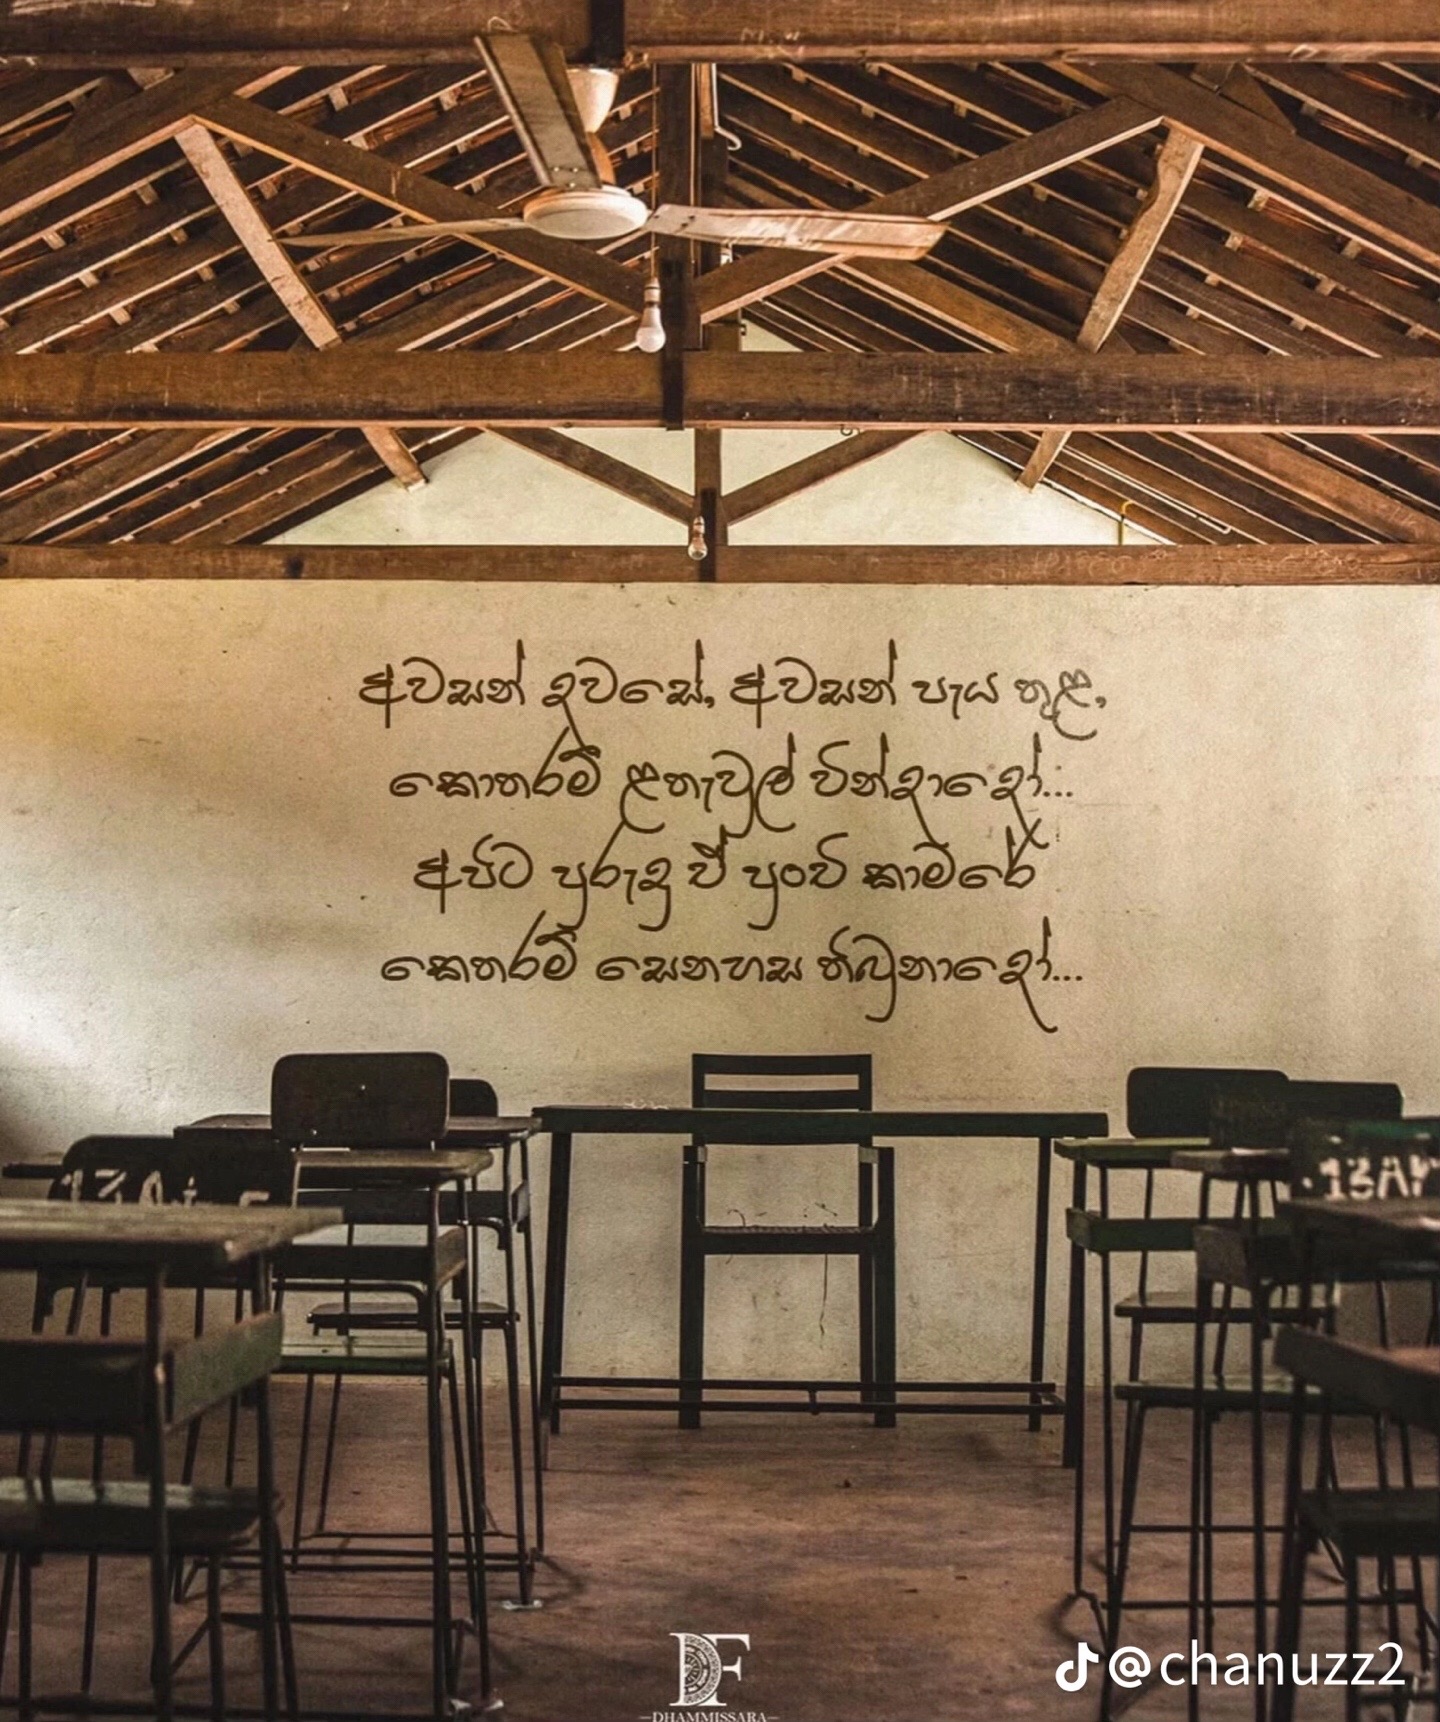 අවසන් දවසේ, අවසන් පැය තුළ,
කොතරම් ළතැවුල් වින්දාදෝ...
අපිට පුරුදු ඒ පුංචි කාමරේ
කෙතරම් සෙනහස තිබුනාදෝ...
13A
13A
DF
DHAMMISSARA
@chanuzz2